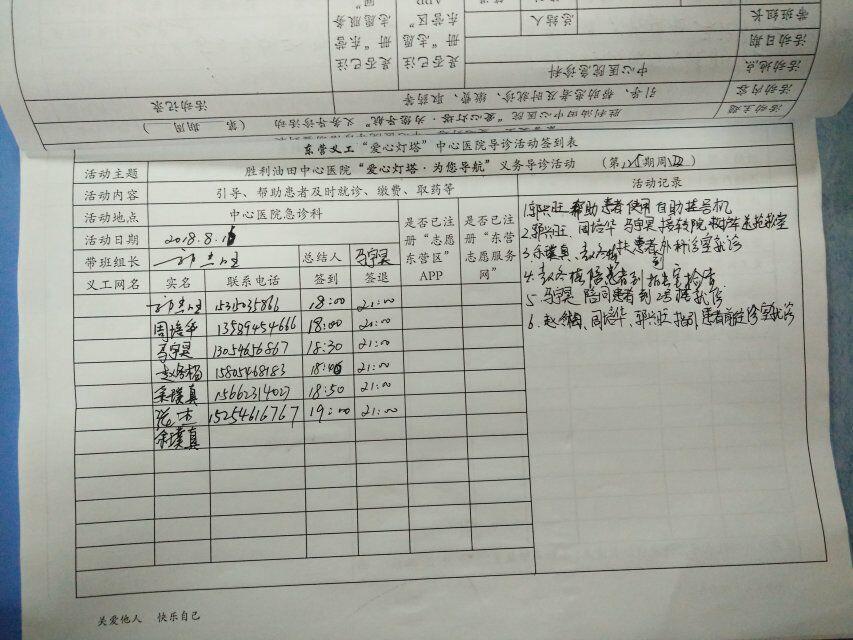 带班组长
总结人
活动日期
活动地点 中心医院急诊科
是否已注册“志愿东营区”APP
是否已注册“东营志愿服务网”
活动内容 引导、帮助患者及时就诊、缴费、取药等
活动主题 胜利油田中心医院“爱心灯塔·为您导航”义务导诊活动 (第 期周 )
活动记录
东营义工“爱心灯塔”中心医院导诊活动签到表
活动主题 胜利油田中心医院“爱心灯塔·为您导航”义务导诊活动 (第 期周 )
活动内容 引导、帮助患者及时就诊、缴费、取药等 活动记录
活动地点 中心医院急诊科
是否已注册“志愿东营区”APP
是否已注册“东营志愿服务网”
活动日期 2018.8.
带班组长 总结人 马宇昊
义工网名 实名 联系电话 签到 签退
18:00 21:00
周培华 13589454666 18:00 21:00
马宇昊 13054656867 18:30 21:00
15805468183 21:00
15662314027 18:50 21:00
15254616767 19:00 21:00
1.郭兴旺帮助患者使用自助挂号机
2.郭兴旺、周培华 马宇昊接转院 送抢救室
3. 扶患者到外科诊室就诊
4. 陪患者到 室检查
5.马宇昊陪同患者到 就诊
6. 周培华、郭兴旺指引患者前往诊室就诊
关爱他人 快乐自己